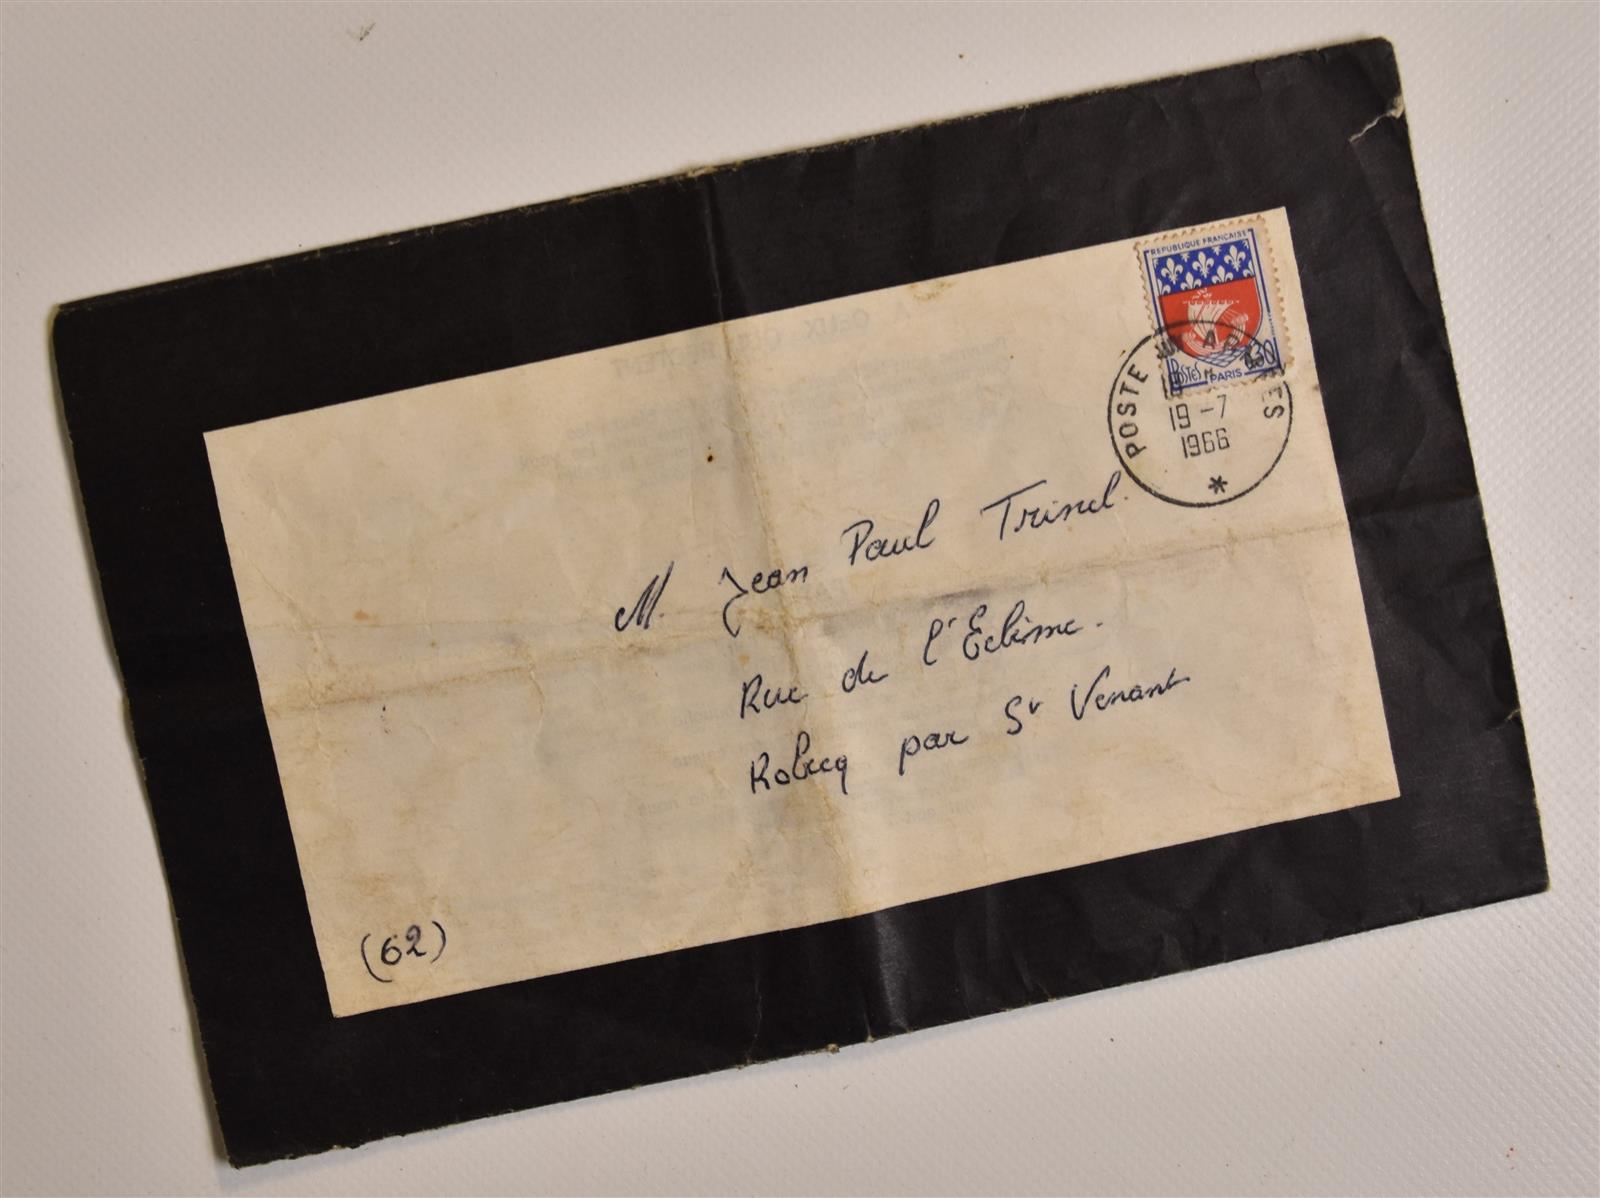 REPUBLIQUE FRANÇAISE
0,30
POSTES PARIS
POSTE AUX ARMEES
19-7
1966
*
M. Jean Paul Trinel.
Rue de l'Eclème.
Robecq par St Venant
(62)